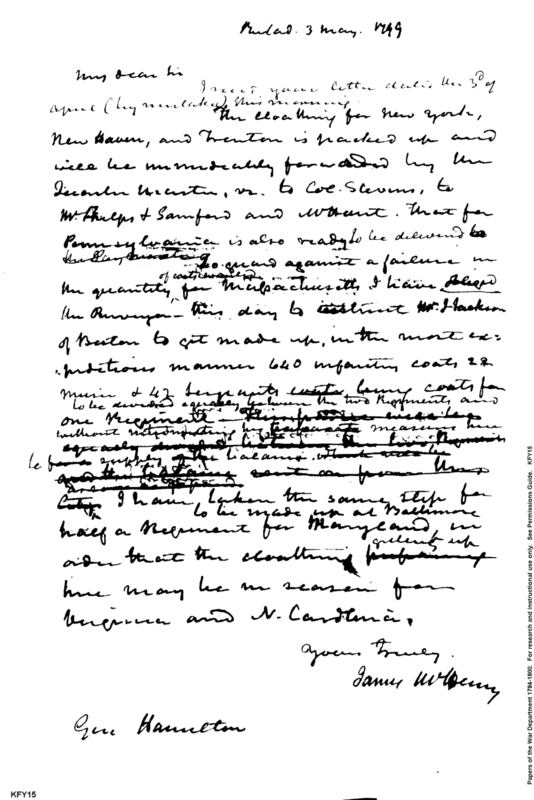 Philad. 3 May. 1799
My dear Sir
I recd. your letter dated the 3d of
April (by mistake) this morning.
The cloathing for New York,
New Haven, and Trenton is packed up and
will be immediately forwarded by the
Quarter Master, vz. to Col. Stevens, to
Mr Phelps & Sanford and Mr Hunt. That for
Pennsylvania is also ready to be delivered to
the Pay master
To guard against a failure in
of coats
the quantity for Massachusetts I have obliged
the Purveyor this day to instruct Mr. J Jackson
of Boston to get made up, in the most ex-
peditious manner 640 infantry coats 22
music & 42 Sergeants coats being coats for
to be divided equally between the two Regiments and
one Regiment
without measures here
equally the two Regiments
to supply the balance which
and the sent on from this
City. I have taken the same step for
to be made up at Baltimore
half a Regiment for Maryland, in
order that the cloathing preparing
getting up
here may be in season for
Virginia and N. Carolina.
Yours truly
James McHenry
Gen Hamilton
KFY15
Papers of the War Department 1784-1800. For research and instructional use only. See Permissions Guide. KFY15